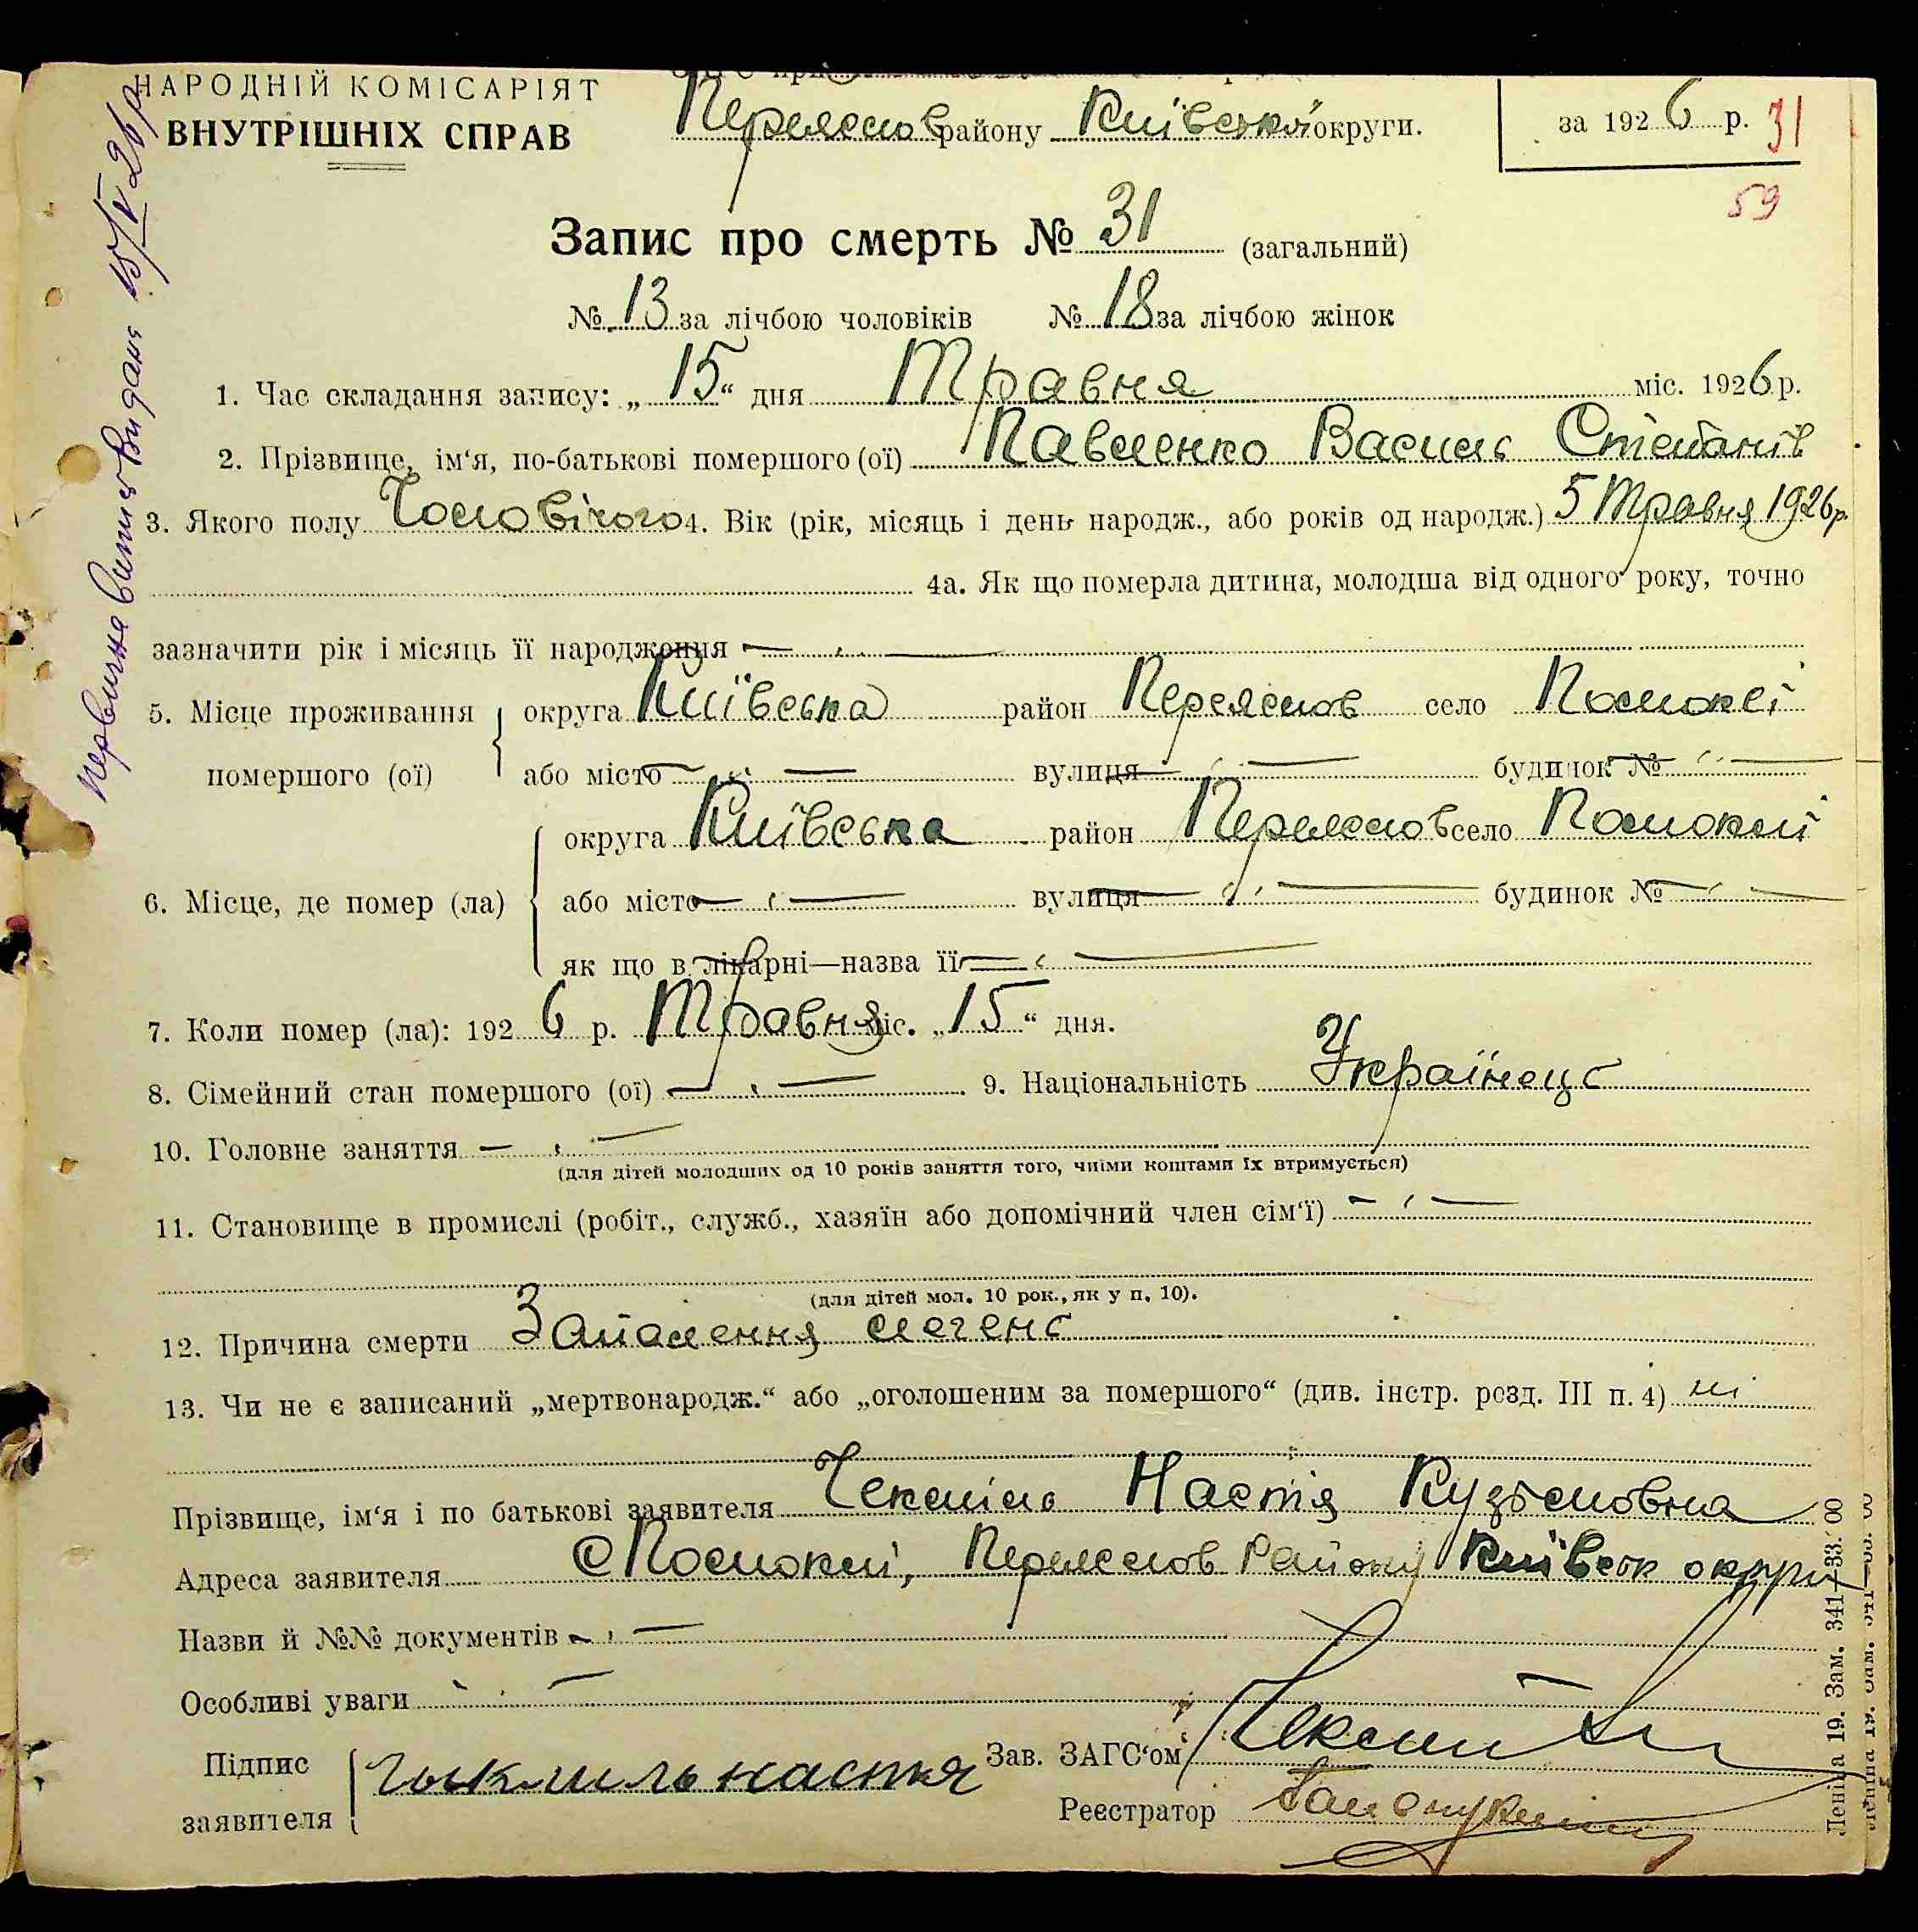 НАРОДНІЙ КОМІСАРІЯТ
ВНУТРІШНІХ СПРАВ
Переяслов району Київської округи.
за 1926 р. 31
59
Первична випись видана 15/V 26 р
Запис про смерть № 31 (загальний)
№ 13 за лічбою чоловіків № 18 за лічбою жінок
1. Час складання запису: „ 15 “ дня Травня міс. 1926 р.
2. Прізвище, ім‘я, по-батькові помершого (ої) Павленко Василь Степанів
3. Якого полу Чоловічого 4. Вік (рік, місяць і день народж., або років од народж.) 5 Травня 1926 р.
4а. Як що померла дитина, молодша від одного року, точно
зазначити рік і місяць її народження — „ —
5. Місце проживання помершого (ої) округа Київська район Переяслов село Помоклі
або місто — „ — вулиця — „ — будинок № — „ —
6. Місце, де помер (ла) округа Київська район Переяслов село Помоклі
або місто — „ — вулиця — „ — будинок № — „ —
як що в лікарні—назва її — „ —
7. Коли помер (ла): 1926 р. Травня міс. „ 15 “ дня.
8. Сімейний стан помершого (ої) — „ — 9. Національність Українець
10. Головне заняття — „ —
(для дітей молодших од 10 років заняття того, чиїми коштами їх втримується)
11. Становище в промислі (робіт., служб., хазяїн або допомічний член сім‘ї) — „ —
(для дітей мол. 10 рок., як у п. 10).
12. Причина смерти Запалення легень
13. Чи не є записаний „мертвонародж.“ або „оголошеним за помершого“ (див. інстр. розд. III п. 4) ні
Прізвище, ім‘я і по батькові заявителя Чекміль Настія Кузьмовна
Адреса заявителя с Помоклі, Переяслов Району Київськ округи
Назви й №№ документів — „ —
Особливі уваги — „ —
Підпис заявителя чыкмиль настя Зав. ЗАГС‘ом
Реєстратор
Леніна 19. Зам. 341—33.